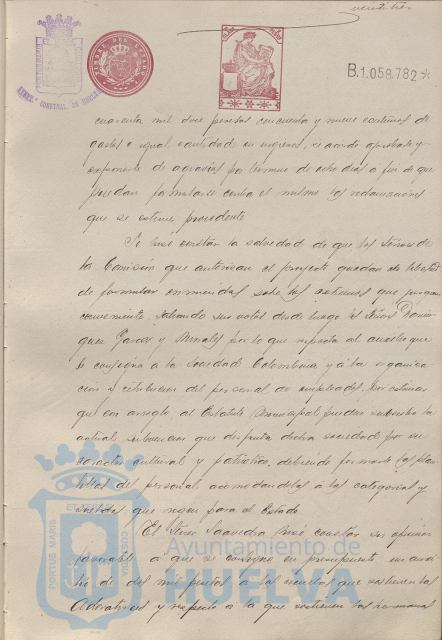 veintitrés
B.1.058.782
TIMBRE DEL ESTADO
cuarenta mil doce pesetas cincuenta y nueve céntimos de
gastos e igual cantidad en ingresos, se acordó aprobarlo y
exponerle de agravios por término de ocho días a fin de que
puedan formularse contra el mismo las reclamaciones
que se estimen procedente
Se hizo constar la salvedad de que los Señores de
la Comisión que autorizan el proyecto quedan en libertad
de formular enmiendas sobre los extremos que juzguen
conveniente, salvando sus votos desde luego los Señores Domin
guez Garcés y por lo que respecta al auxilio que
se consigna a la Sociedad Colombina y a la organiza
ción y retribución del personal de empleados, por estimar
que con arreglo al Estatuto Municipal pueden subsistir la
actual subvención que disfruta dicha sociedad por su
caracter cultural y patriótico, debiendo formarse las plan
tillas del personal acomodándolas a las categorías y
sueldos que rigen para el Estado
El Señor Saavedra hizo constar su opinión
favorable a que se consigne en presupuesto un auxi
lio de dos mil pesetas a las escuelas que sostienen las
Adoratrices y respecto a la que sostienen las hermanas
PORTUS MARIS
Ayuntamiento de
HUELVA